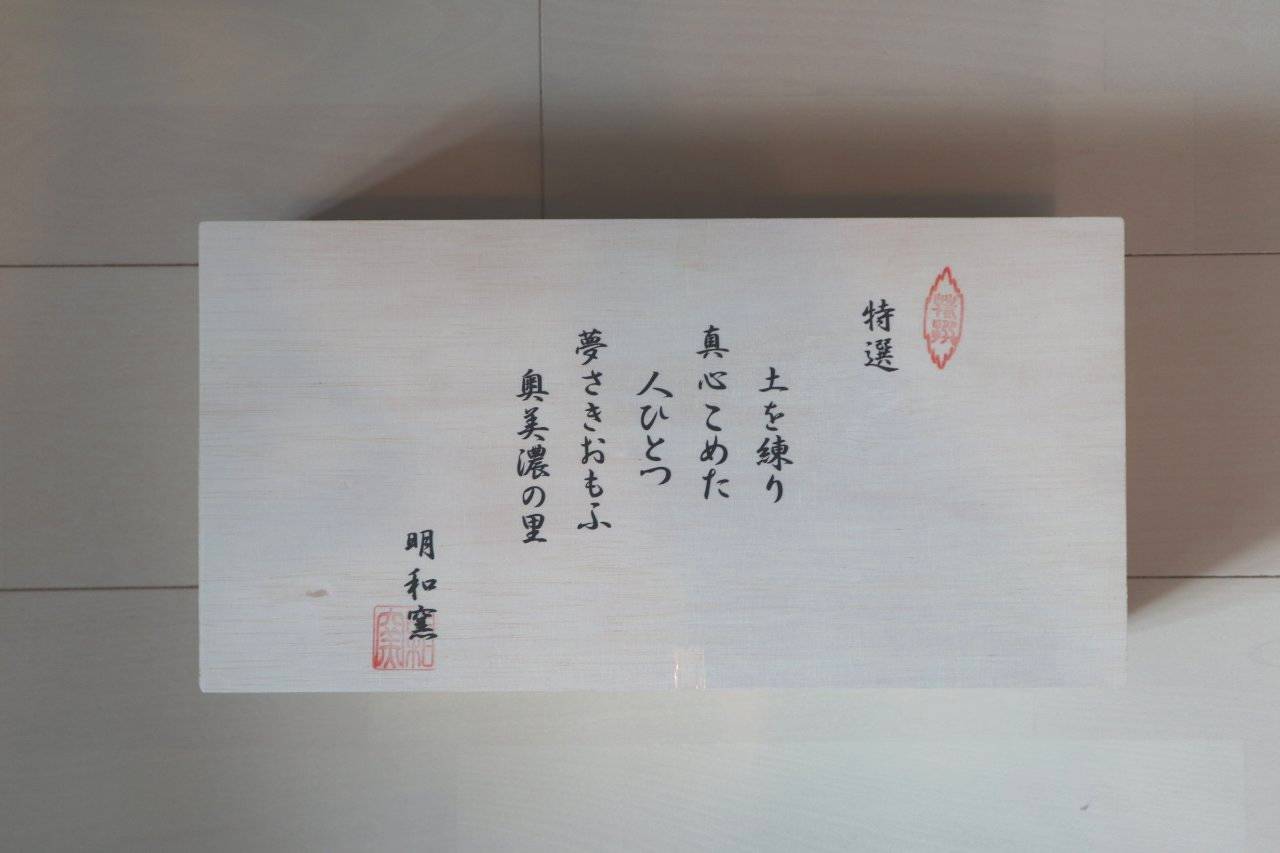 特選
土を練り
真心こめた
人ひとつ
夢さきおもふ
奥美濃の里
明和窯